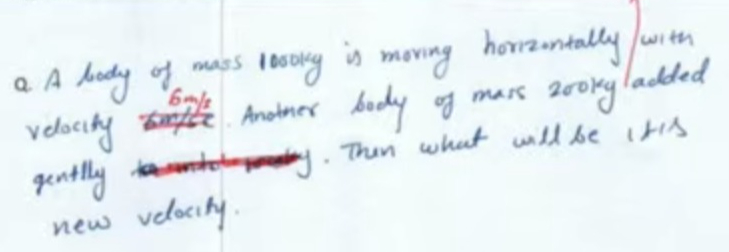 Q A body of mass 1000kg is moving horizontally with
velocity 6m/s . Another body of mass 200kg added
gentlly . Then what will be its
new velocity.